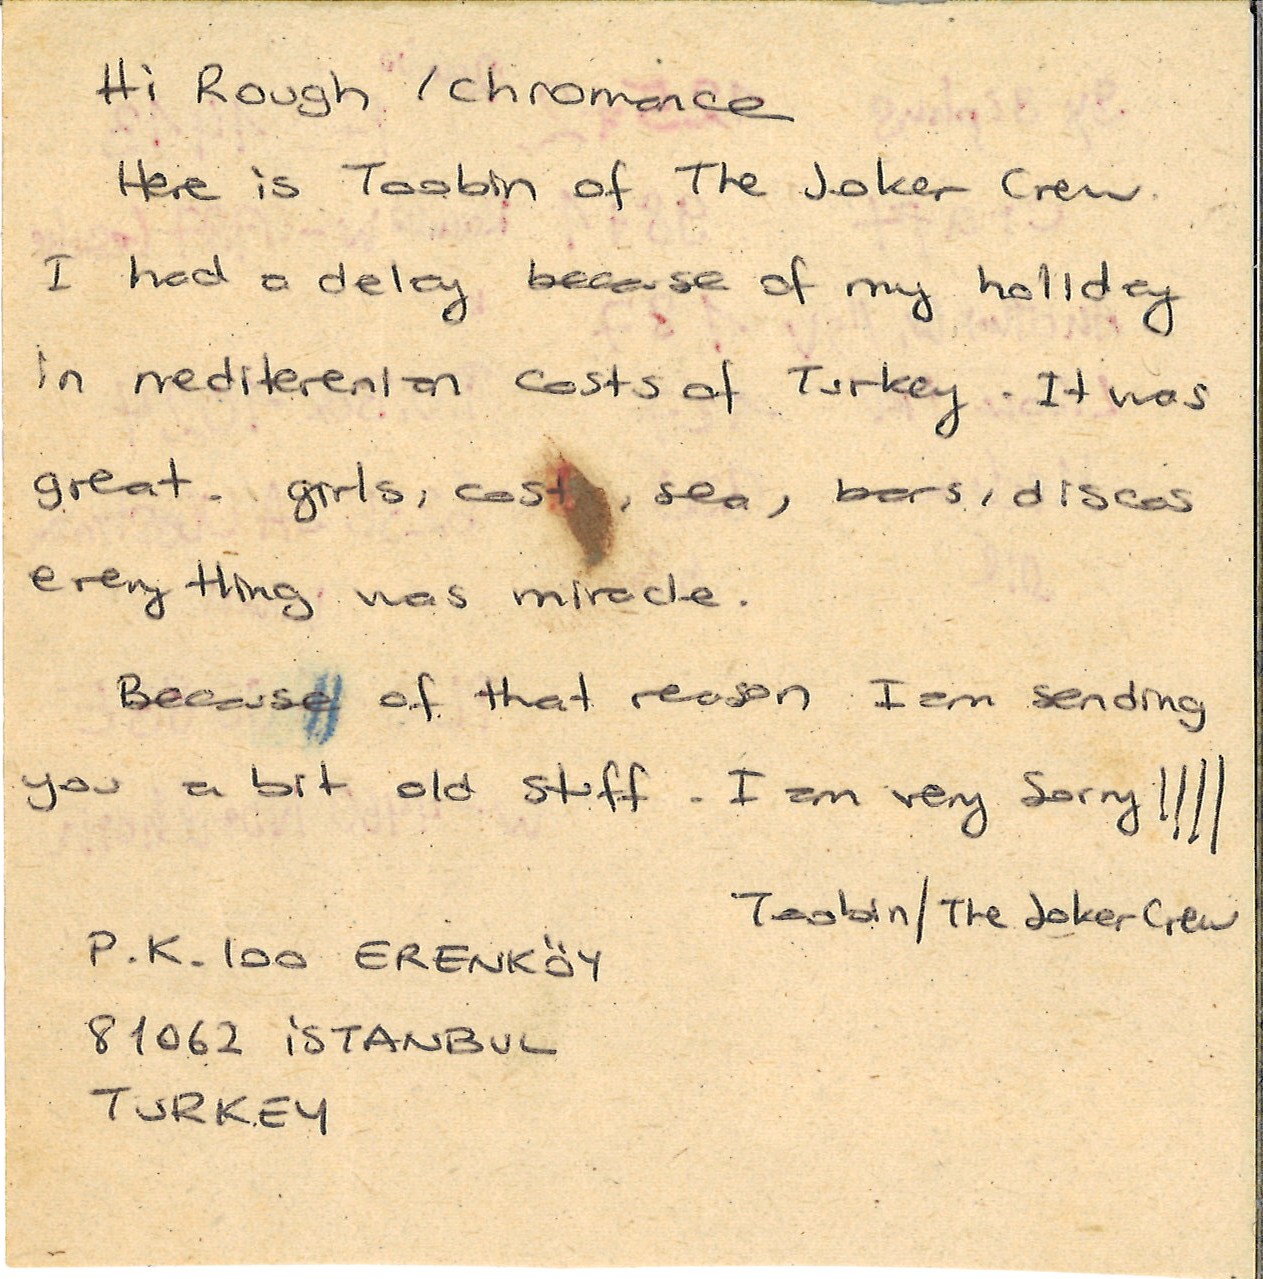 Hi Rough / chromance
Here is Toobin of The Joker Crew.
I had a delay because of my holiday
in mediterenian costs of Turkey. It was
great. girls, cost, sea, bars, discos
everything was miracle.
Because of that reason I am sending
you a bit old stuff. I am very Sorry!!!!
Toobin/The Joker Crew
P.K. 100 ERENKÖY
81062 İSTANBUL
TURKEY